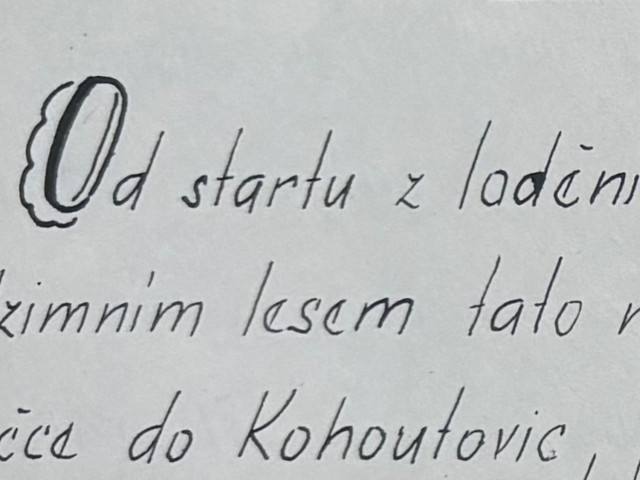 Od startu z loděni
zimním lesem tato
do Kohoutovic,